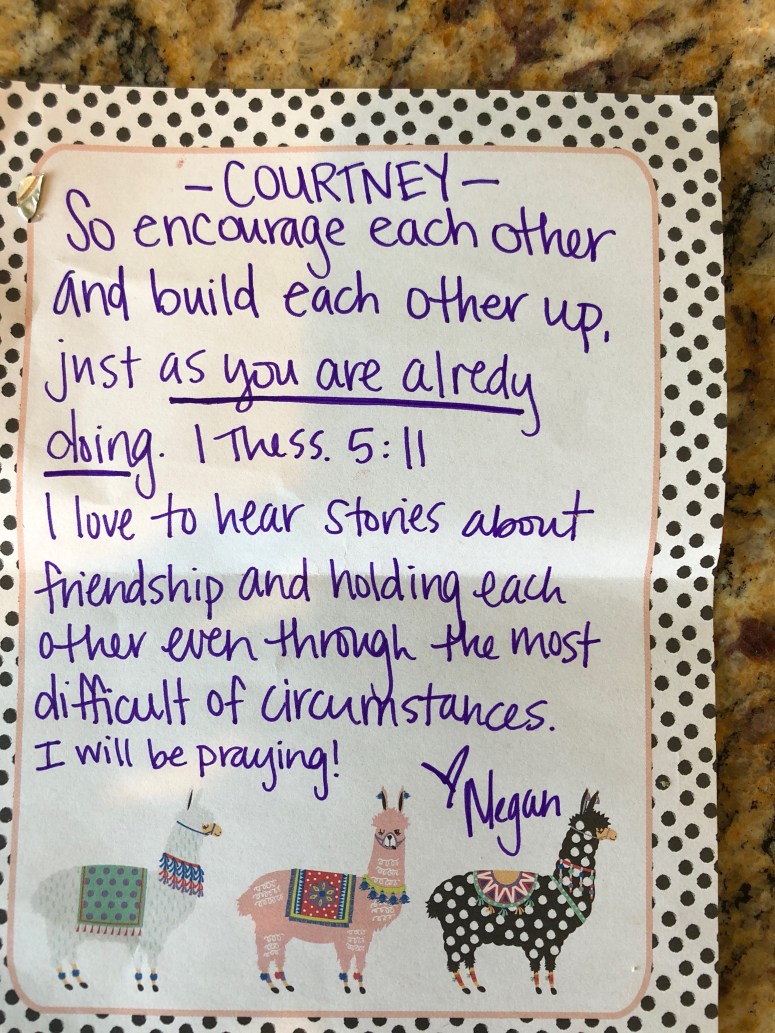 - COURTNEY -
So encourage each other
and build each other up,
just as you are alredy
doing. 1 Thess. 5:11
I love to hear stories about
friendship and holding each
other even through the most
difficult of circumstances.
I will be praying!
Megan